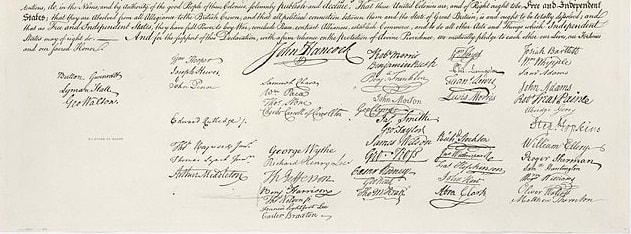 States, that they are Absolved from all Allegiance to the British Crown, and that all political connection between them and the State of Great Britain, is and ought to be totally dissolved; and
that as Free and Independent States, they have full Power to levy War, conclude Peace, contract Alliances, establish Commerce, and to do all other Acts and Things which Independent
States may of right do. And for the support of this Declaration, with a firm reliance on the Protection of divine Providence, we mutually pledge to each other our Lives, our Fortunes
and our sacred Honor.
John Hancock
Button Gwinnett
Lyman Hall
Geo Walton.
Wm Hooper
Joseph Hewes,
John Penn
Edward Rutledge.
Thos Heyward Junr.
Thomas Lynch Junr.
Arthur Middleton
Samuel Chase
Wm Paca
Thos Stone
Charles Carroll of Carrollton
George Wythe
Richard Henry Lee
Th Jefferson
Benj Harrison
Thos Nelson jr.
Francis Lightfoot Lee
Carter Braxton
Robt Morris
Benjamin Rush
Benj Franklin
John Morton
Geo Clymer
Jas Smith
Geo Taylor
James Wilson
Geo. Ross
Caesar Rodney
Geo Read
Tho M:Kean
Wm Floyd
Phil. Livingston
Frans Lewis
Lewis Morris
Richd Stockton
Jno Witherspoon
Fras Hopkinson
John Hart
Abra Clark
Josiah Bartlett
Wm Whipple
Saml Adams
John Adams
Robt Treat Paine
Elbridge Gerry
Step. Hopkins
William Ellery
Roger Sherman
Saml Huntington
Wm Williams
Oliver Wolcott
Matthew Thornton